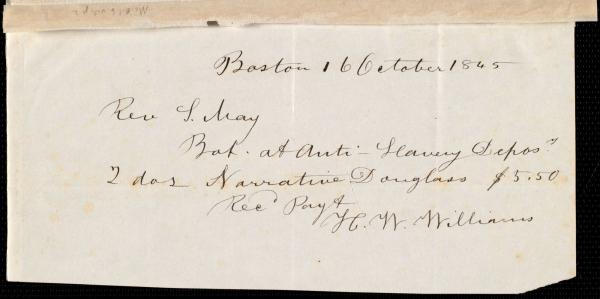 Boston 16 October 1845
Rev S. May
Bot. at Anti-Slavery Depos.y
2 doz Narrative Douglass $5.50
Rec'd Payt
H. W. Williams